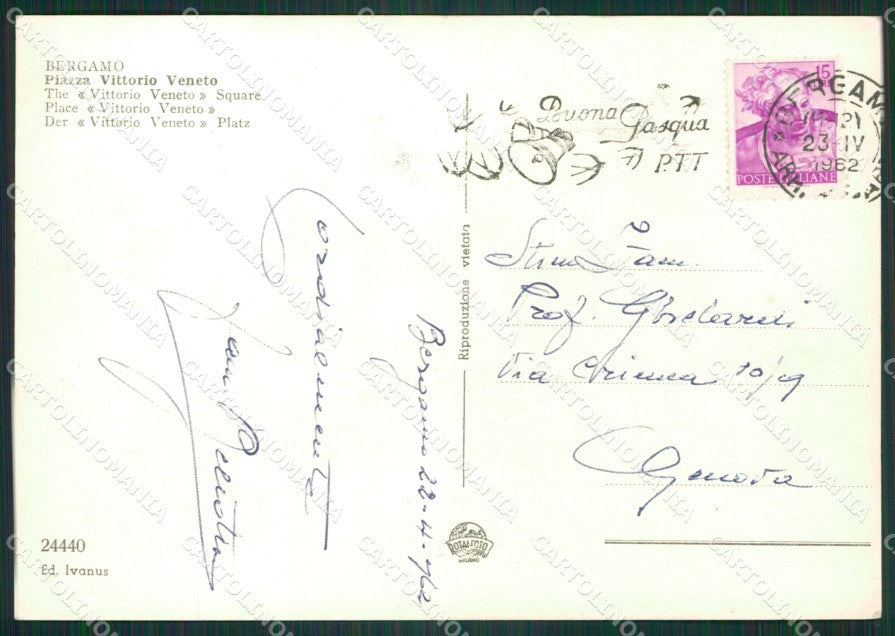 BERGAMO
Piazza Vittorio Veneto
The « Vittorio Veneto » Square
Place « Vittorio Veneto »
Der « Vittorio Veneto » Platz
Buona Pasqua
P.T.T
15
POSTE ITALIANE
BERGAMO
21
23 IV
1962
Cordialmente
Bergamo 22-4-962
Riproduzione vietata
Fam.
Prof. Ghelardi
Via Crimea 10/9
Genova
24440
Ed. Ivanus
ROTALFOTO
MILANO
CARTOLINOMANIA